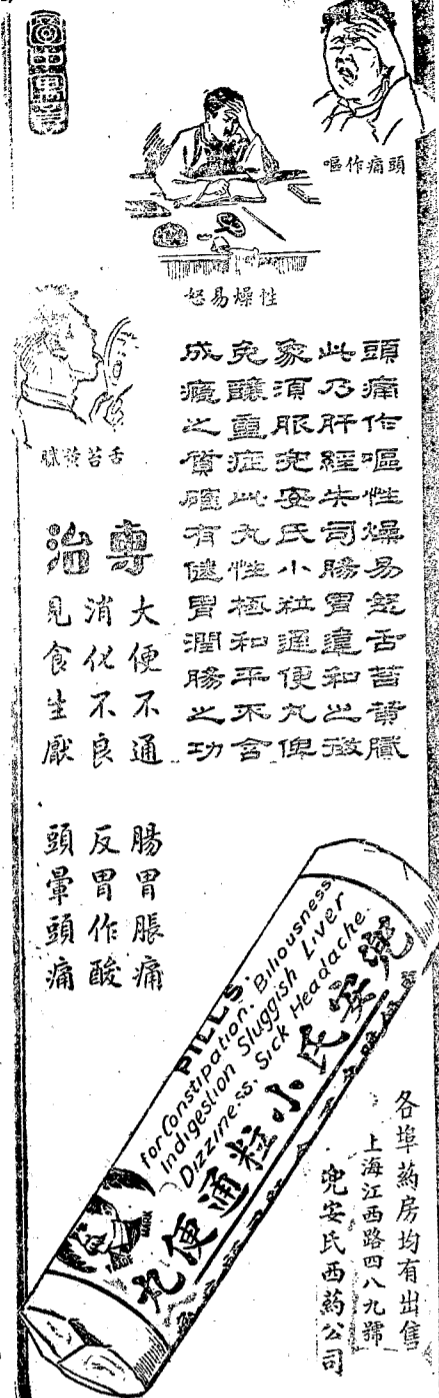 圖中寓意
頭痛作嘔
性燥易怒
舌苔黃膩
頭痛作嘔性燥易怒舌苔黃膩
此乃肝經失司腸胃違和之徵
象須服兜安氏小粒通便丸俾
免釀重症此丸性極和平不含
成癮之質確有健胃潤腸之功
專治
大便不通 腸胃脹痛
消化不良 反胃作酸
見食生厭 頭暈頭痛
兜安氏小粒通便丸
PILLS.
for Constipation. Biliousness
Indigestion Sluggish Liver
Dizziness. Sick Headache.
各埠葯房均有出售
上海江西路四八九號
兜安氏西葯公司